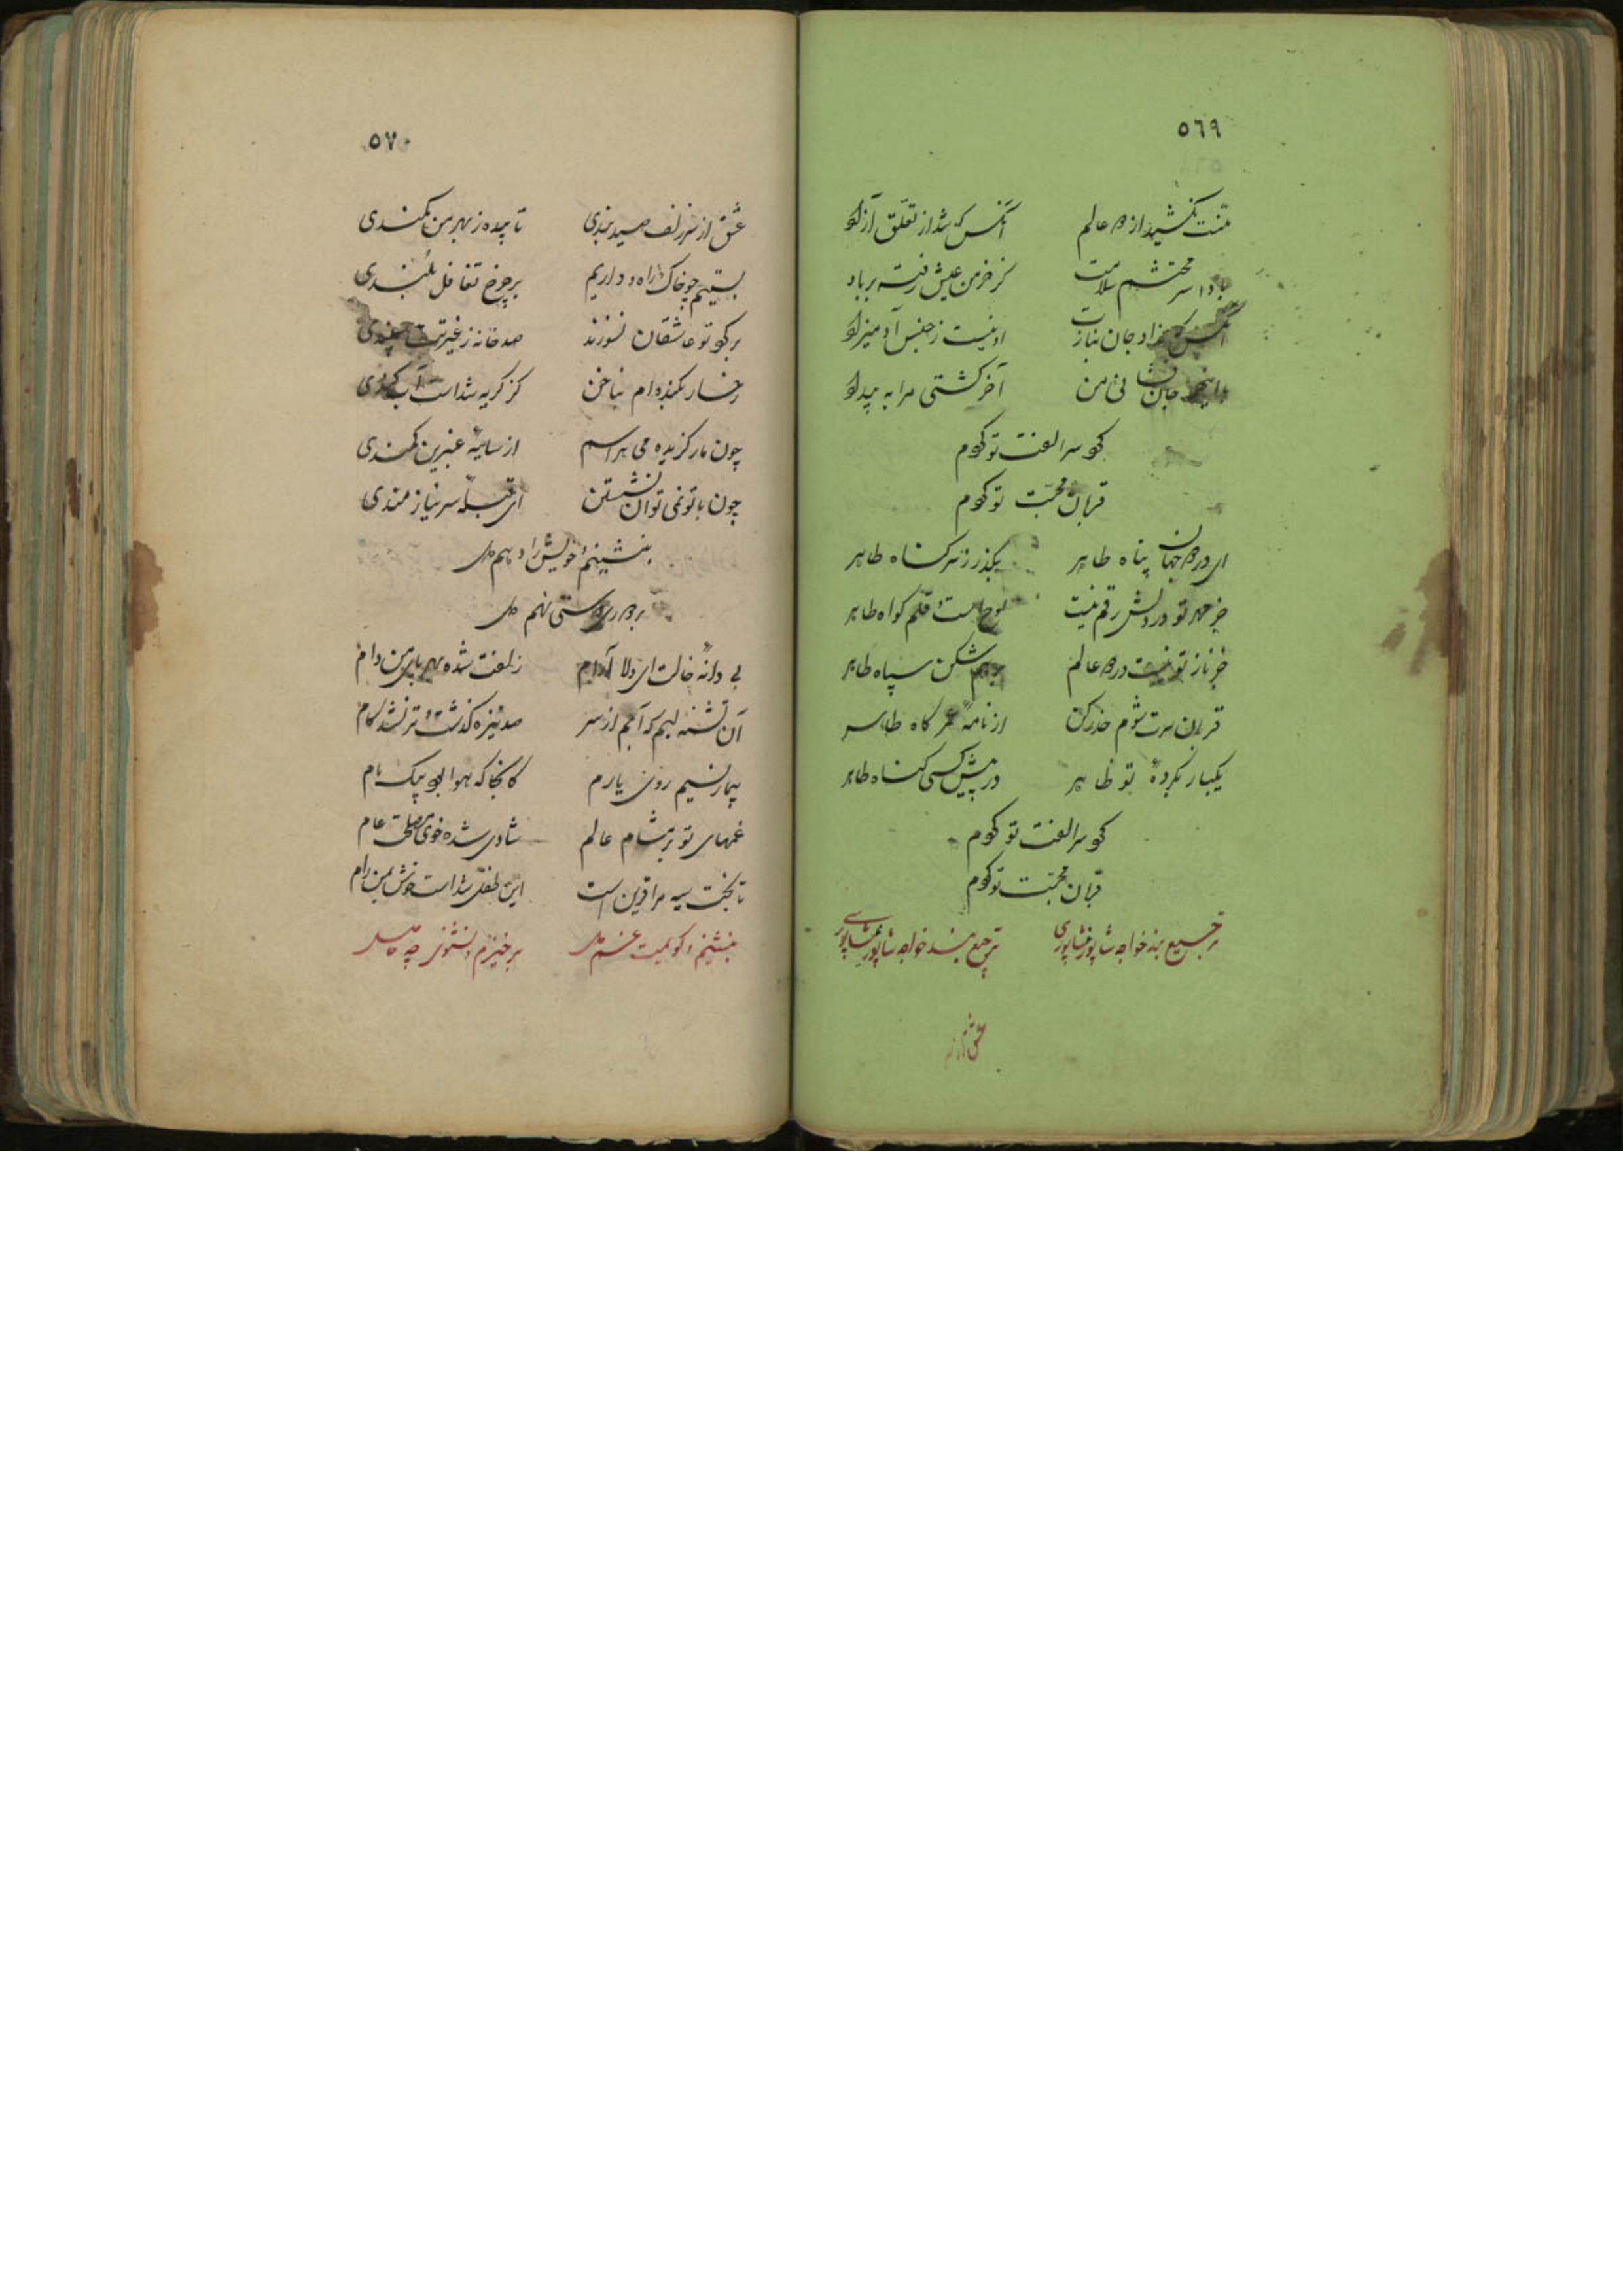 ٥٦٩
منت نکشید از دو عالم آنکس که شد از تعلق آزاد
بادا سر محتشم سلامت کز خرمن عیش رفته بر باد
آنکس که نداد جان بنازت او نیست ز جنس آدمیزاد
جان من آخر کشتی مرا به بیداد
کو سر الفت تو کردم
قربان محبت تو کردم
ای در دو جهان پناه طاهر بگذر ز سر گناه طاهر
جز مهر تو در دلش رقم نیست لوح است و قلم گواه طاهر
جز ناز تو نیست در دو عالم برهم شکن سپاه طاهر
قربان سرت شوم حذر کن از نامهٔ عمر کاه طاهر
یکبار نکردهٔ تو ظاهر در پیش کسی گناه طاهر
کو سر الفت تو کردم
قربان محبت تو کردم
ترجیع بند خواجه شاپور نیشاپوری ترجیع بند خواجه شاپور نیشاپوری
عشق از
٥٧٠
عشق از سر زلف صید بندی تا چیده ز بهر من کمندی
بستیم چو خاک راه و داریم بر چرخ تغافل بلندی
بر کو تو عاشقان نسوزند صد خانه ز غیرت سپندی
رخسار بکنده‌ام بناخن کز گریه شداست آب کندی
چون مار گزیده می هراسم از سایهٔ عنبرین کمندی
چون با تو نمی توان نشستن ای قبلهٔ سر نیاز مندی
بنشینم و خویش را دهم دل
بر درد نهم دل
بی دانهٔ خالت ای دلارام زلفت شده بهر پای من دام
آن تشنه لبم که آبم از سر صد نیزه گذشت و تر نشد کام
بیمار نسیم روی یارم کانجا که هوا بود پیک نام
غمهای تو عالم شادی شده خوی عام
تا بخت سیه مرا قرین است این طفل شداست خوش بمن رام
بنشینم و گویمت غم دل برخیزم و نشنوی چه حاصل